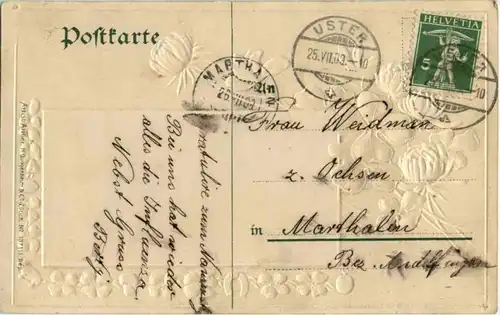 Postkarte
USTER
25.VII.09.-10
HELVETIA
5
MARTHAL
Frau Weidman
z. Ochsen
in Marthalen
Bez. Andelfingen
Gratulire zum Namenstag
Bei uns hat wieder
alles die Influenza.
Nebst Gruss